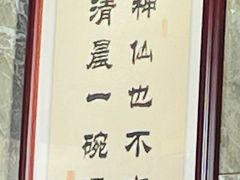 神仙也不
清晨一碗